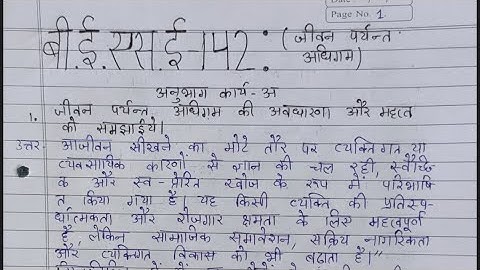 Page No. 1
बी.ई.एस.ई-142:
(जीवन पर्यन्त
अधिगम)
अनुभाग कार्य-अ
1. जीवन पर्यन्त अधिगम की अवधारणा और महत्व
को समझाईये।
उत्तर- आजीवन सीखने का मोटे तौर पर व्यक्तिगत या
व्यवसायिक कारणों से ज्ञान की चल रही, स्वैच्छि
क और स्व-प्रेरित खोज के रूप में परिभाषि
त किया गया है यह किसी व्यक्ति की प्रतिस्प-
र्धात्मकता और रोजगार क्षमता के लिए महत्वपूर्ण
है, लेकिन सामाजिक समावेशन, सक्रिय नागरिकता
और व्यक्तिगत विकास को भी बढ़ाता है।"